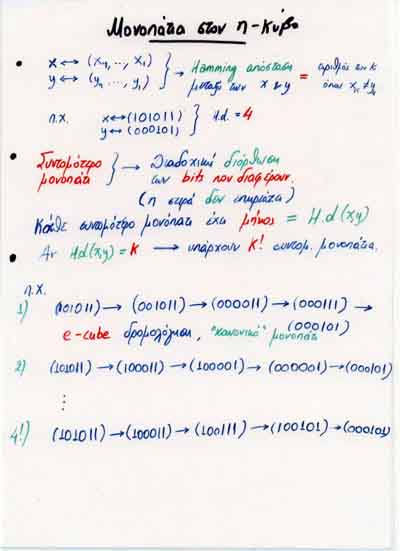 Μονοπάτια στον n-κύβο
• x ↔ (xn, .., x1)
y ↔ (yn ..., y1) } → Hamming απόσταση μεταξύ των x & y = αριθμός των k όπου xk ≠ yk
π.χ. x ↔ (101011)
y ↔ (000101) } H.d. = 4
• Συντομότερο μονοπάτι } → Διαδοχική διόρθωση των bits που διαφέρουν.
(η σειρά δεν επηρεάζει)
Κάθε συντομότερο μονοπάτι έχει μήκος = H.d(x,y)
• Αν Hd(x,y) = K → υπάρχουν K! συντομ. μονοπάτια.
π.χ.
1) (101011) → (001011) → (000011) → (000111) →
(000101)
e-cube δρομολόγηση, "κανονικό" μονοπάτι
2) (101011) → (100011) → (100001) → (000001) → (000101)
⋮
4!) (101011) → (100011) → (100111) → (100101) → (000101)